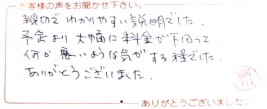 お客様の声をお聞かせ下さい。
親切で わかりやすい説明でした。
予定より 大幅に料金が下回って
何か 悪いような気がする程でした。
ありがとうございました。
ありがとうございました。